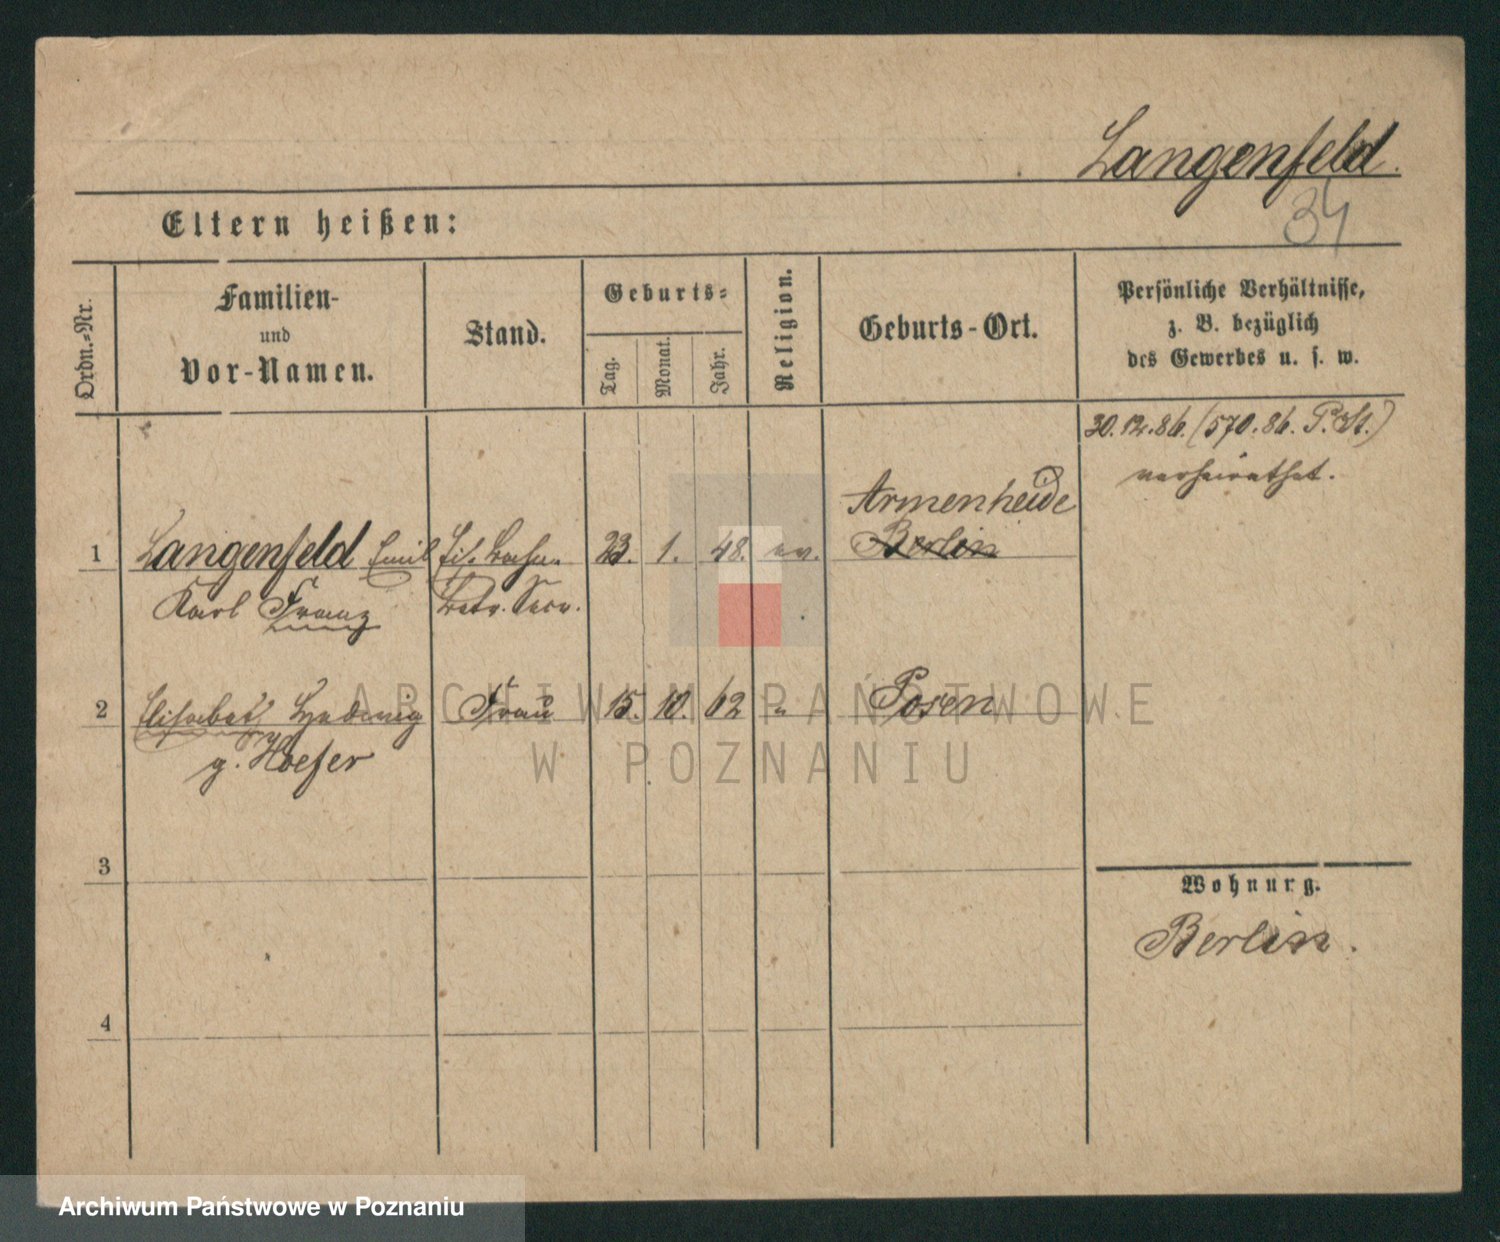 Langenfeld.
34
Eltern heißen:
Ordn.-Nr.
Familien-
und
Vor-Namen.
Stand.
Geburts-
Tag.
Monat.
Jahr.
Religion.
Geburts-Ort.
Persönliche Verhältnisse,
z. B. bezüglich
des Gewerbes u. s. w.
30.12.86. (570.86. P. St.)
verheirathet.
Armenheide
1 Langenfeld Emil Eis. Bahn- 23. 1. 48. ev. Berlin
Karl Franz Betr. Secr.
2 Elisabet Hedwig Frau 15. 10. 62 " Posen
g. Hoefer
3
Wohnung.
Berlin.
4
ARCHIWUM PAŃSTWOWE
W POZNANIU
Archiwum Państwowe w Poznaniu